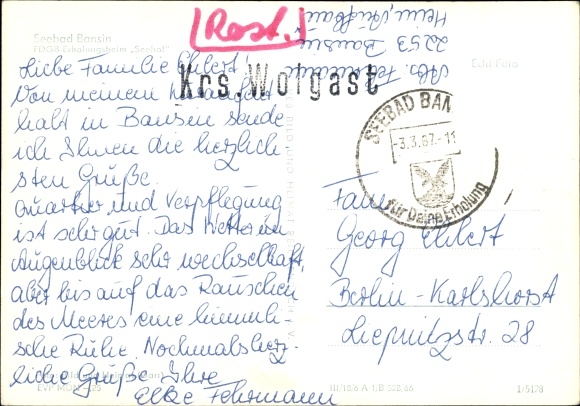 [Rost.]
Seebad Bansin
FDGB Erholungsheim „Seehof"
Echt Foto
Abs. Fehrmann
2253 Bansin
Heim „Aufbau"
Krs. Wolgast
SEEBAD BAN
-3.3.67.-11
für Deine Erholung
Liebe Familie Ehlert,
Von meinem
halt in Bansin sende
ich Ihnen die herzlich
sten Grüße.
Quartier und Verpflegung
ist sehr gut. Das Wetter im
Augenblick sehr wechselhaft,
aber bis auf das Rauschen
des Meeres eine himmli-
sche Ruhe. Nochmals herz-
liche Grüße Ihre
Elke Fehrmann
Fam.
Georg Ehlert
Berlin-Karlshorst
Liepnitzstr. 28
III/18/6 A 1/B 328/66
1/5128